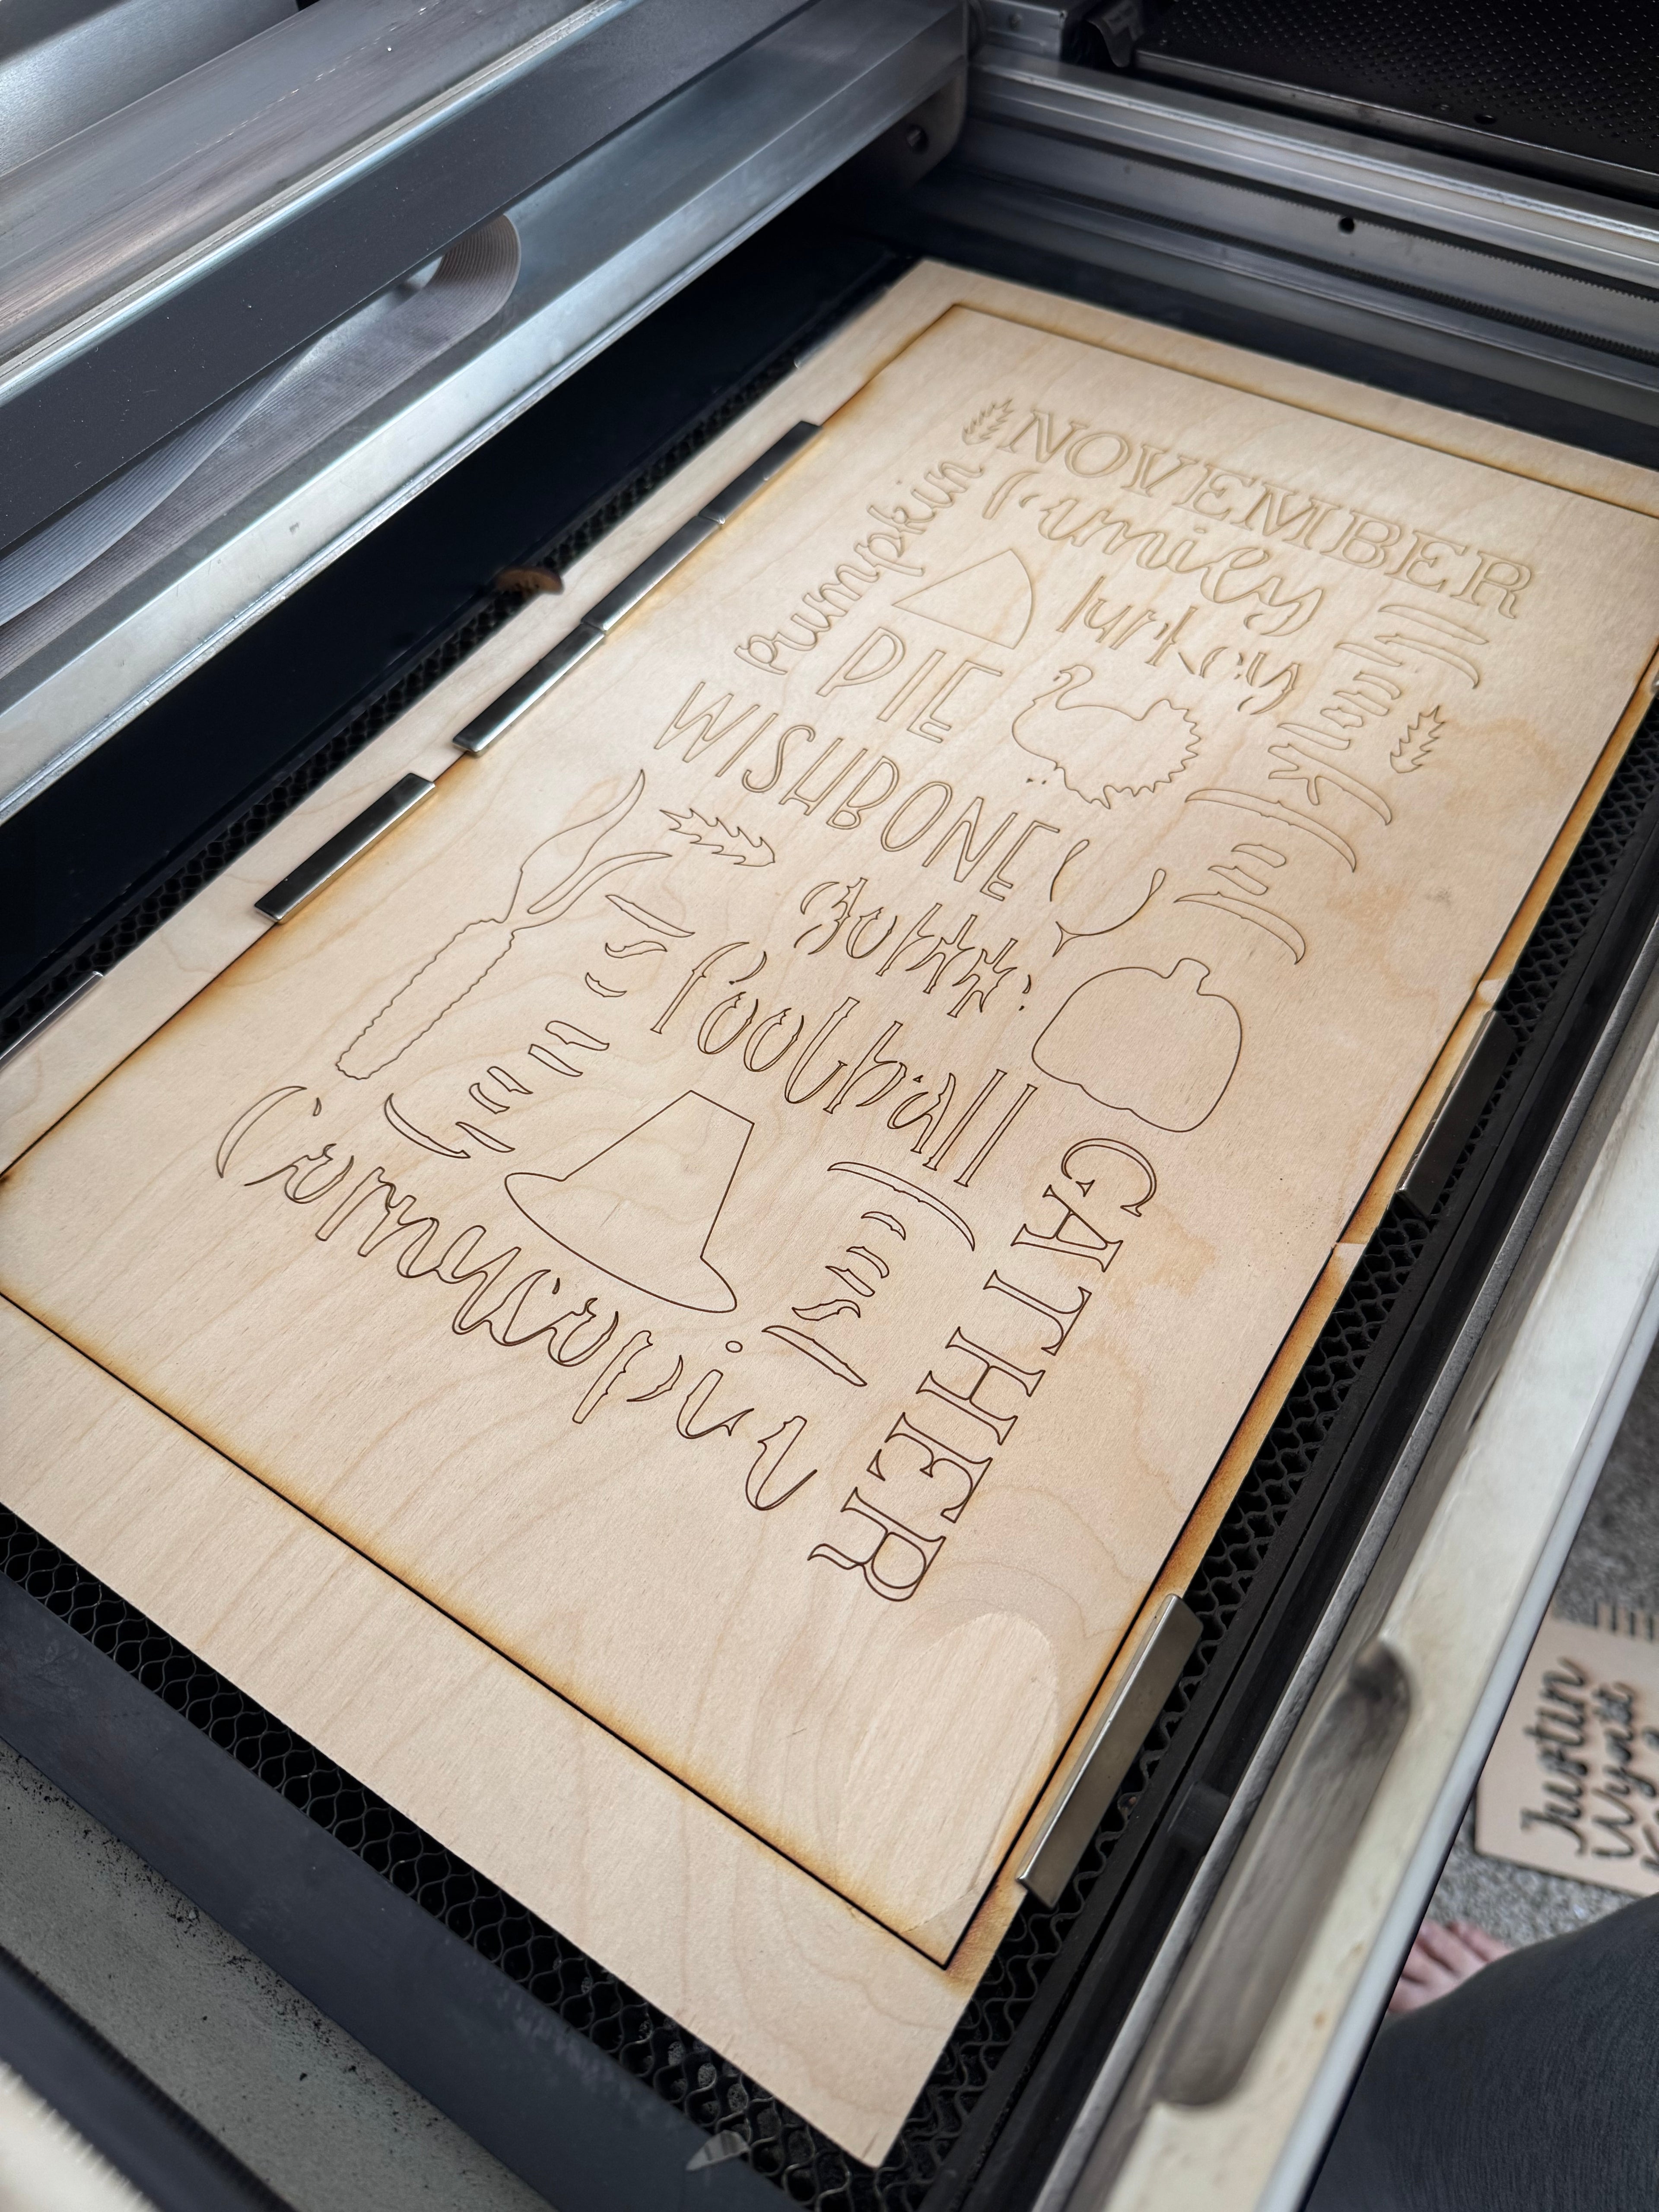 NOVEMBER
family
pumpkin
turkey
PIE
Thankful
WISHBONE
football
GATHER
Cornucopia
Justin
Wyatt